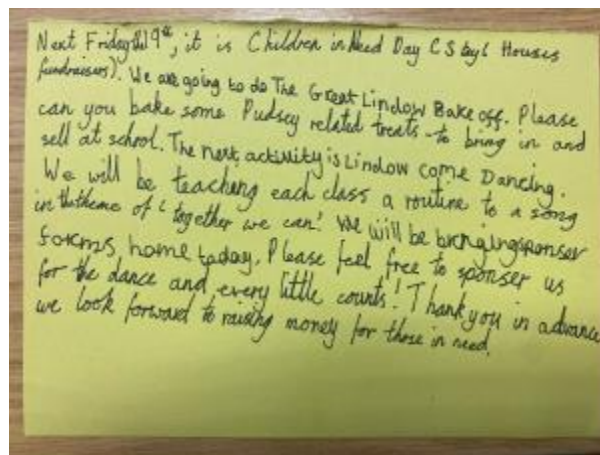 Next Friday the 19th, it is Children in Need Day (
fundraisers). We are going to do The Great Lindow Bake off. Please
can you bake some Pudsey related treats to bring in and
sell at school. The next activity is Lindow come Dancing.
We will be teaching each class a routine to a song
in the theme of 'together we can! We will be bringing sponser
forms home today. Please feel free to sponser us
for the dance and every little counts! Thank you in advance
we look forward to raising money for those in need.